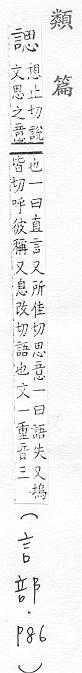 類篇
諰 想止切說
文思之意
也一曰直言又所佳切思意一曰語失又塢
皆切呼彼稱又息改切語也文一重音三
(言部·P86)